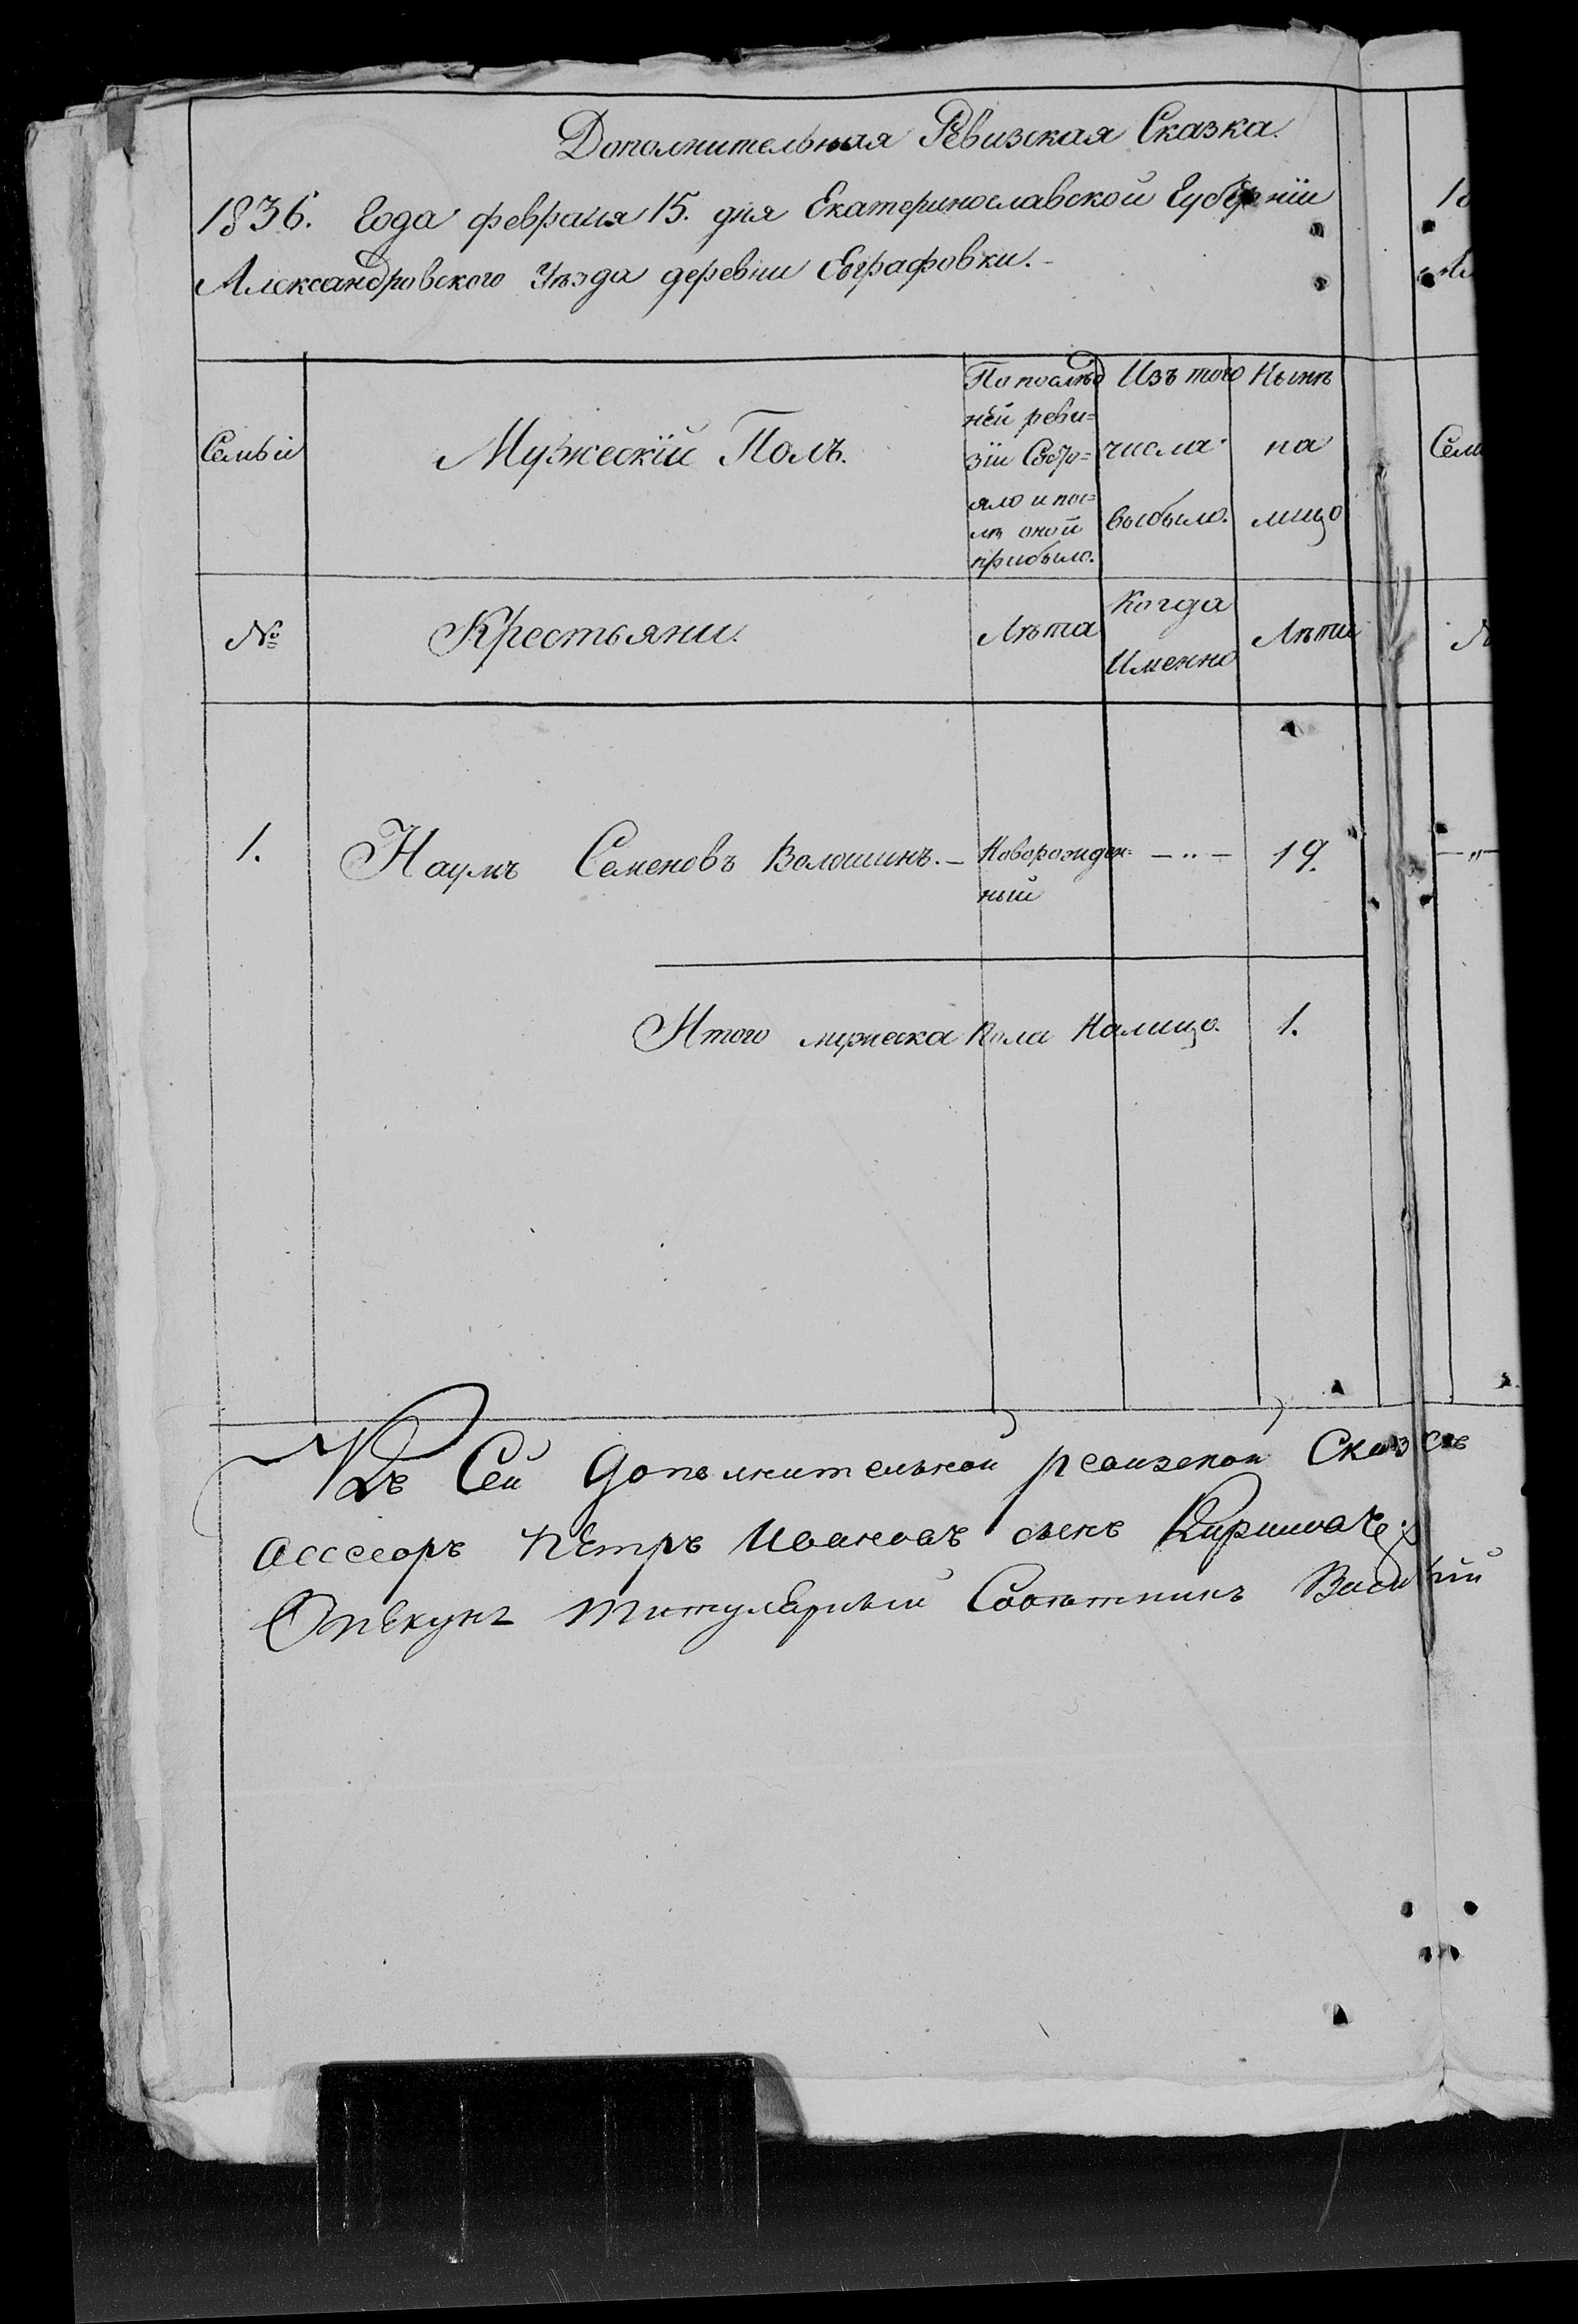 Дополнительная Ревизская Сказка.
1836. Года февраля 15. дня Екатеринославской Губерніи
Александровского Уѣзда деревни Евграфовки.
Семьи
Мужескій Полъ.
По послѣд
ней реви=
зіи Состо=
яло и пос=
лѣ оной
прибыло.
Изъ того
числа
выбыло.
Нынѣ
на
лицо
№
Крестьяни.
Лѣта
Когда
Именно
Лѣта
1.
Наумъ Семеновъ Волошинъ. –
Новорожден=
ный
– „ –
19.
Итого мужеска пола Налицо. 1.
Къ Сей дополнительной ревизской Сказке
ассесоръ Петръ Ивановъ сынъ
Опекунъ титулярный Советникъ Василий
18
Ал
Семи
№
– „ –